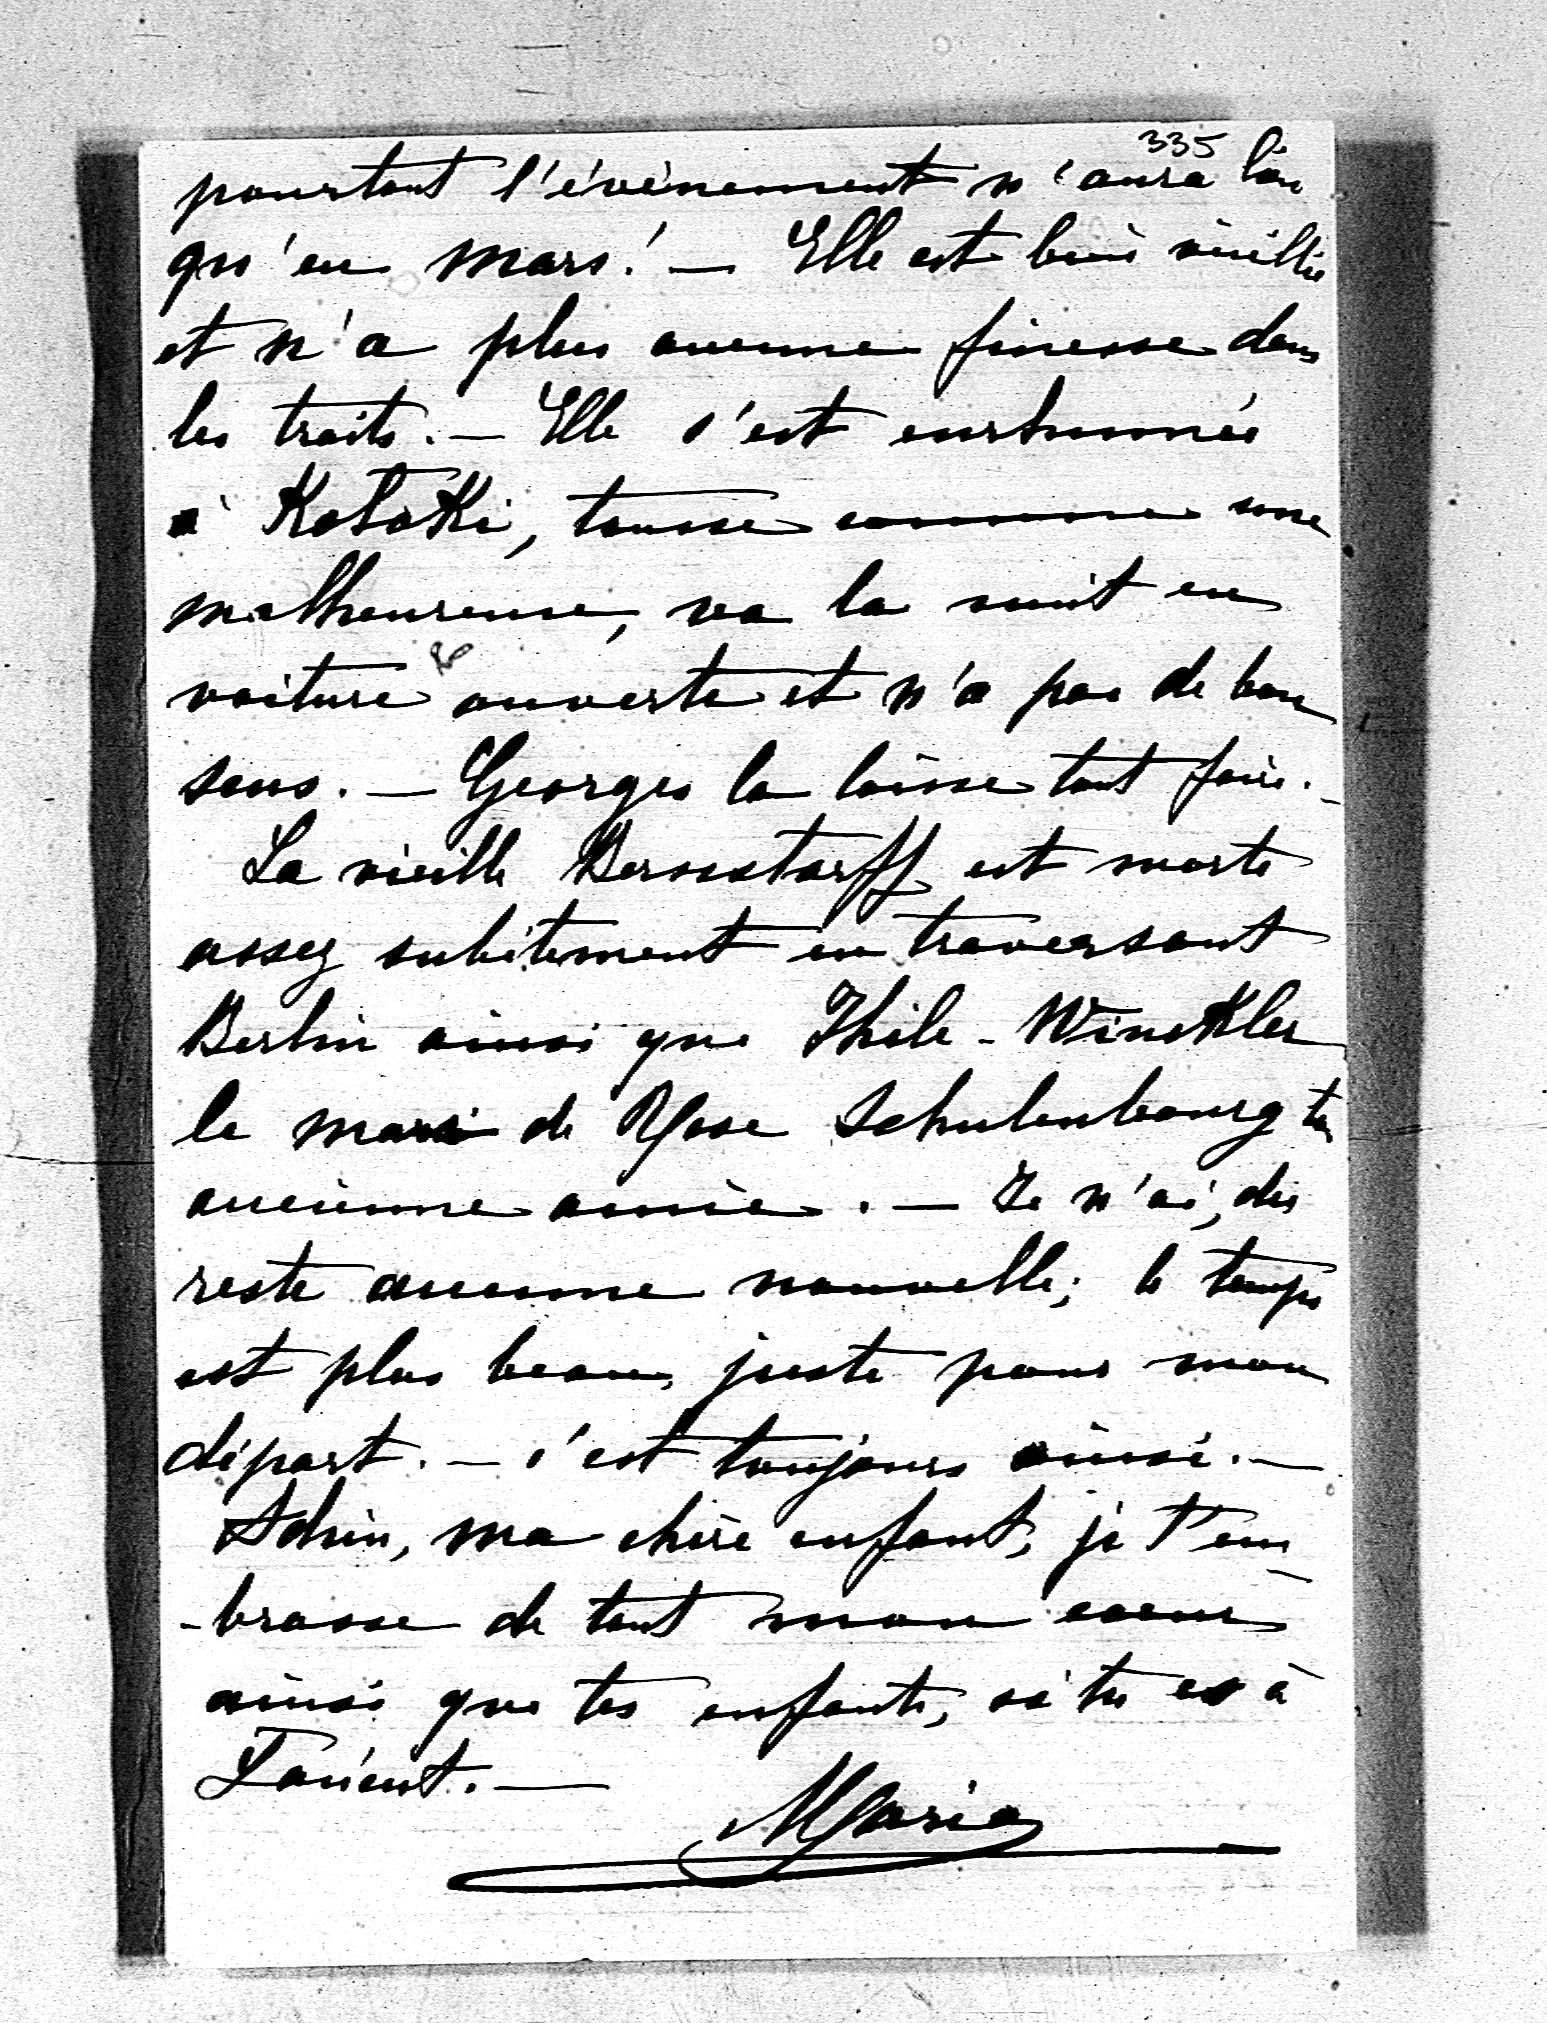 335
pourtant l'évènement n'aura lieu
qu'en Mars! — Elle est bien vieillie
et n'a plus aucune finesse dans
les traits. — Elle s'est enrhumée
à Kotoki, tousse comme une
malheureuse, va la nuit en
voiture ouverte et n'a pas de bon
sens. — Georges la laisse tout faire. —
La vieille Bernstorff est morte
assez subitement en traversant
Berlin ainsi que Thile-Winckler
le mari de Rose Schulenbourg ta
ancienne amie. — Je n'ai, du
reste aucune nouvelle; le temps
est plus beau, juste pour mon
départ. — c'est toujours ainsi. —
Adieu, ma chère enfant, je t'em
-brasse de tout mon coeur
ainsi que tes enfants, si tu es à
Lorient. —
Marie